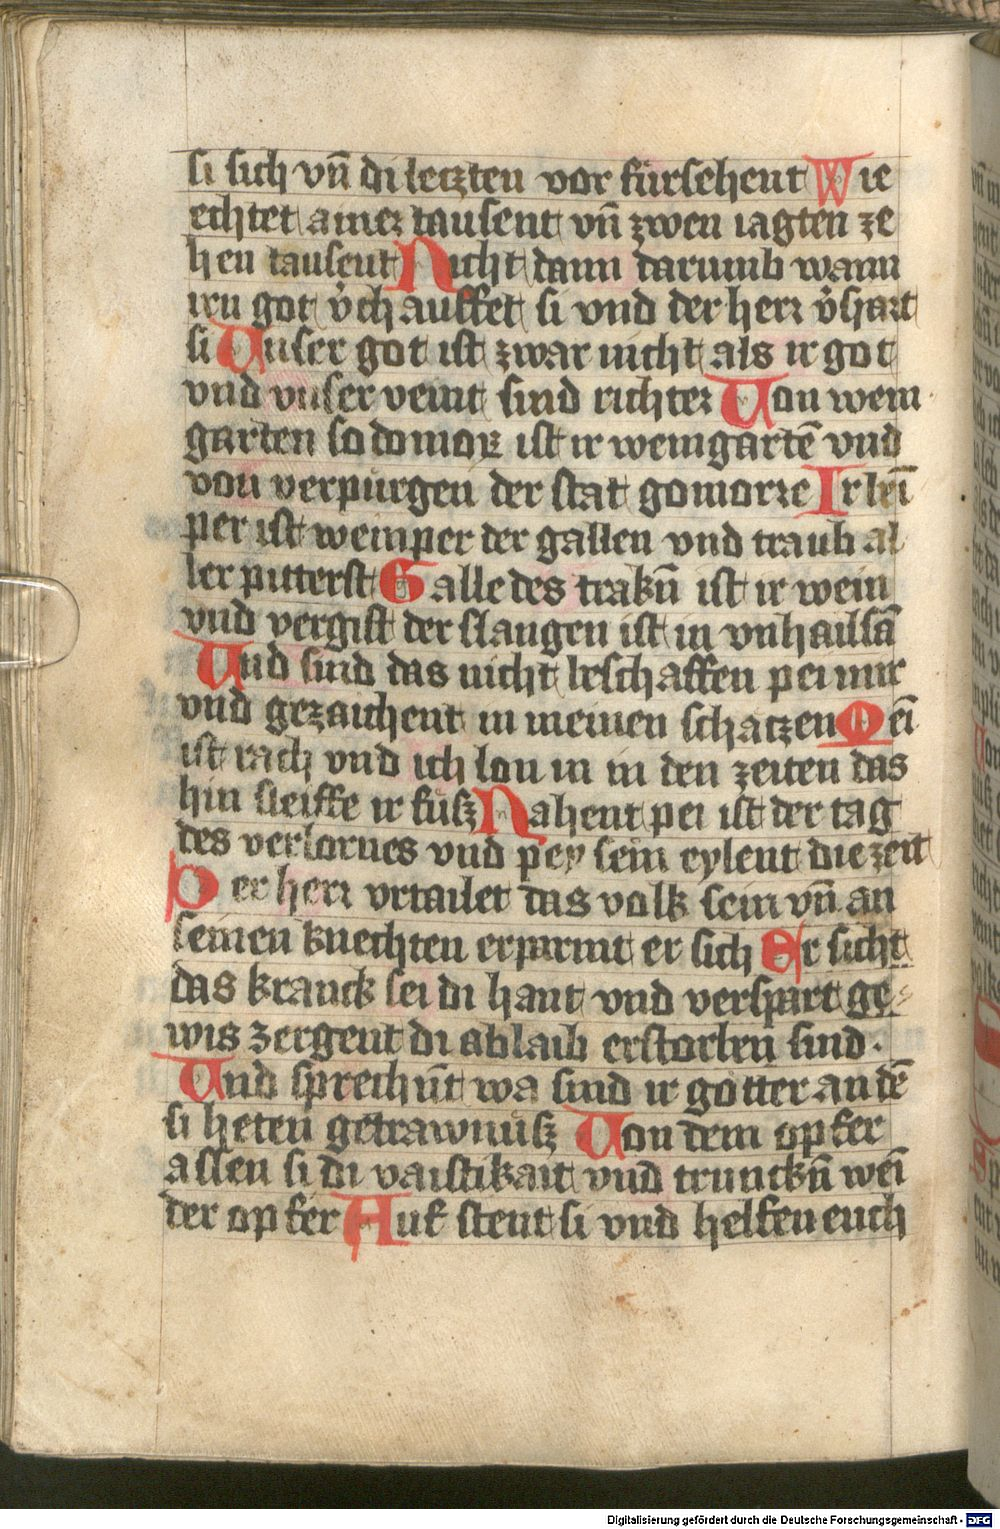 si sich vn̄ di letzten vor fürsehent Wie
echtet ainer tausent vn̄ zwen iagten ze
hen tausent Nicht dann darumb wann
iru got v̓chauffet si vnd der herr v̓spart
si Unser got ist zwar nicht als ir got
vnd vnser veint sind richter Uon wein
garten sodomor ist ir weingartē vnd
von verpürgen der stat gomorre Ir wei
per ist weinper der gallen vnd traub al
ler pitterst Galle des trakn̄ ist ir wein
vnd vergift der slangen ist in vnhailsā
Und sind das nicht beschaffen pei mir
vnd gezaichent in meinen schatzen Mei
ist rach vnd ich lon in in den zeiten das
hin sleiffe ir füsz Nahent pei ist der tag
des verlornes vnd pey sein eylent die zeit
Der herr vrtailet das volk sein vn̄ an
seinen knechten erparmt er sich Er sicht
das kranck sei di hant vnd verspart ge
wis zergent di ablaib erstorben sind.
Und sprechn̄t wa sind ir götter an dē
si heten getrawnüsz Uon dem opfer
assen si di vaistikait vnd trunckn̄ wei
der opfer Auf stent si vnd helfen euch
Digitalisierung gefördert durch die Deutsche Forschungsgemeinschaft - DFG